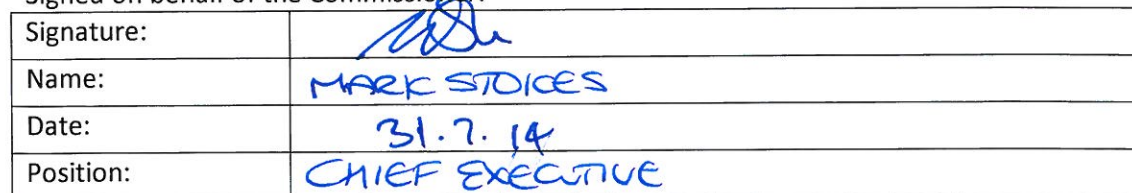 Signed on behalf of the Commissioner:
Signature:
Name: MARK STOKES
Date: 31.7.14
Position: CHIEF EXECUTIVE